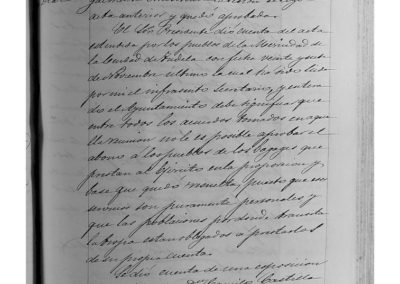 acta anterior y quedó aprobada.
El Sor. Presidente dió cuenta del acta
estendida por los pueblos de la Merindad de
la Ciudad de Tudela con fecha veinte y siete
de Noviembre último la cual ha sido leida
por mi el infrascrito Secretario, y entera-
do el Ayuntamiento debe significar que
entre todos los acuerdos tomados en aque-
lla reunion no le es posible aprobar el
abono á los pueblos de los bagages que
prestan al Ejército en la proporcion y
base que quedó resuelta, puesto que ese
servicio son puramente personales y
que las poblaciones por donde transita
la tropa estan obligados á prestarlos
de su propia cuenta.
Se dió cuenta de una esposicion
Dn. Camilo Castilla